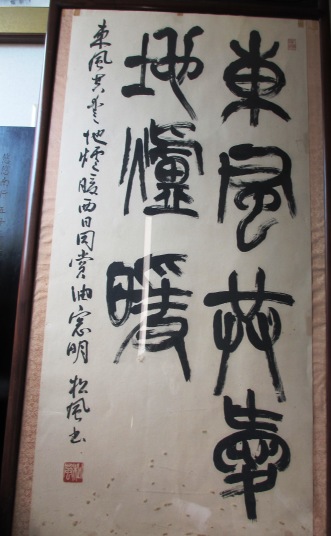 東風共愛
地爐暖
東風共愛地爐暖西日同賞油窓明 松風書